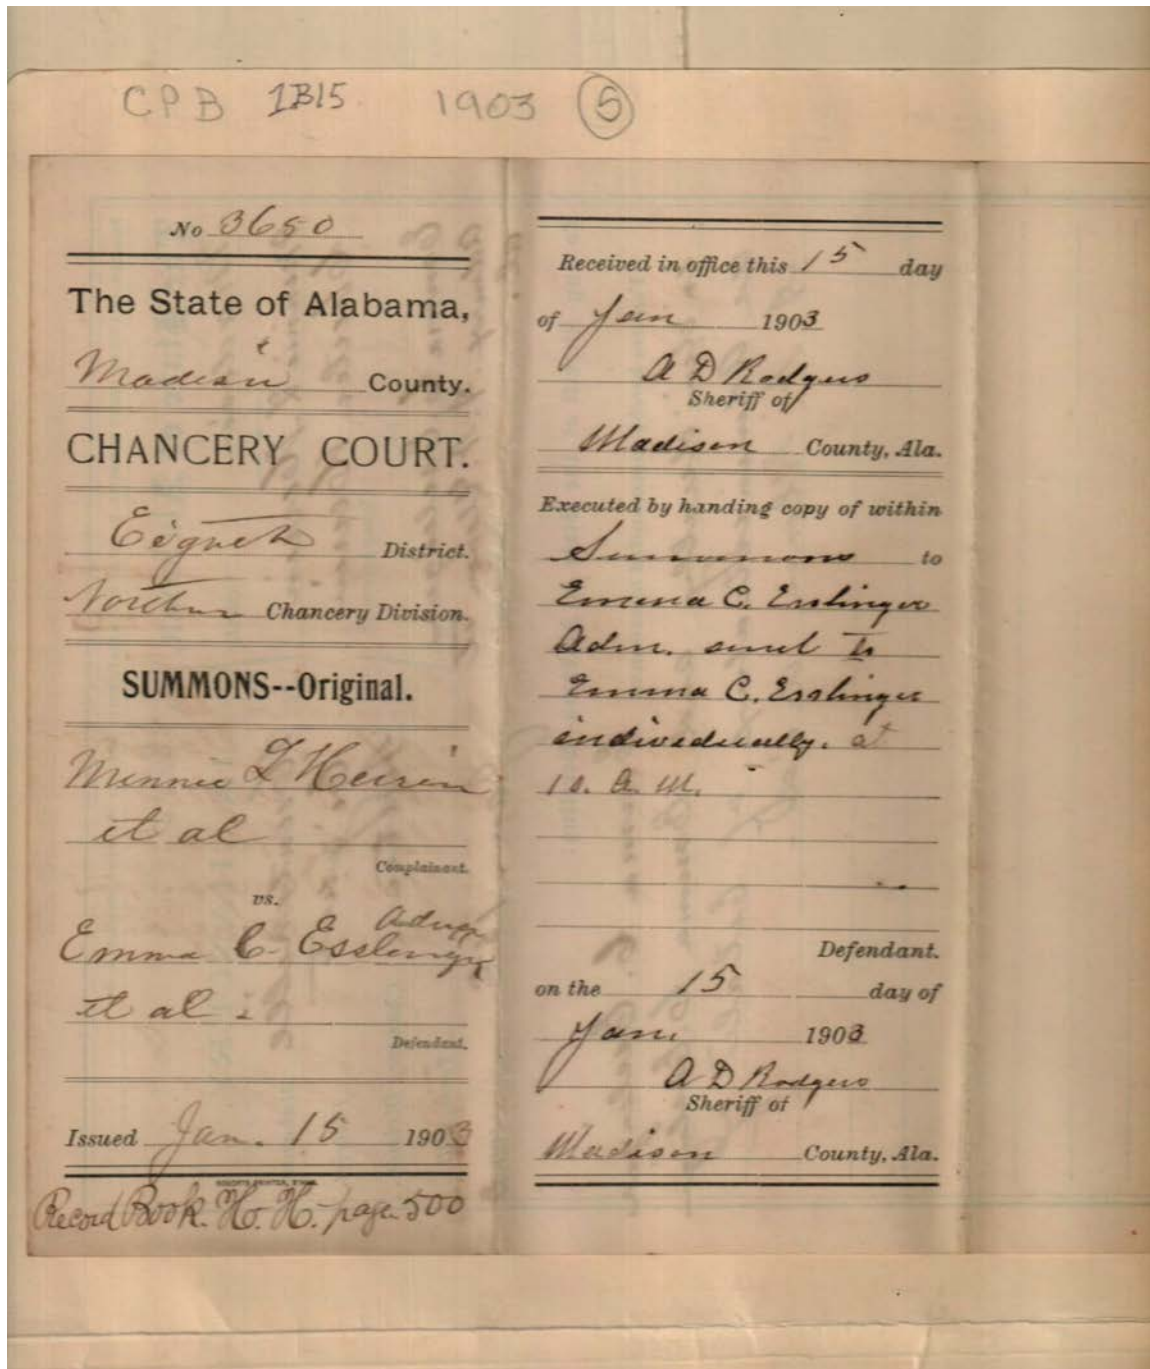 CPB 1B15 1903 5
No 3650
The State of Alabama,
Madison County.
CHANCERY COURT.
Eigueth District.
Northern Chancery Division.
SUMMONS--Original.
Minnie L Herrin
et al
Complainant.
vs.
Admx
Emma C. Esslinger
et al.
Defendant.
Issued Jan. 15 1903
Record Book. H. H. page 500
Received in office this 15 day
of Jan 1903
A D Rodgers
Sheriff of
Madison County, Ala.
Executed by handing copy of within
Summons to
Emma C. Esslinger
Adm. and to
Emma C. Esslinger
individually. at
10. A. M.
Defendant.
on the 15 day of
Jan. 1903
A D Rodgers
Sheriff of
Madison County, Ala.